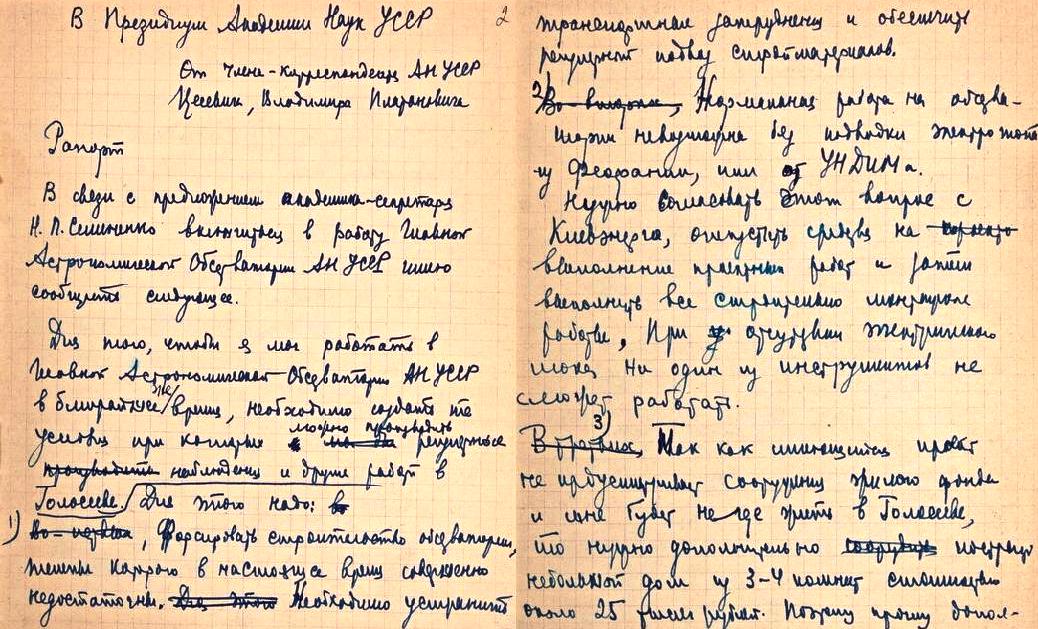 В Президиум Академии Наук УССР
От члена-корреспондента АН УССР
Цесевич, Владимира Платоновича
Рапорт
В связи с предложением академика-секретаря
Н. П. Семененко включиться в работу Главной
Астрономической Обсерватории АН УССР имею
сообщить следующее.
Для того, чтобы я мог работать в
Главной Астрономической Обсерватории АН УССР
в ближайшее же время, необходимо создать те
условия при которых можно производить регулярные
производить наблюдения и другие работы в
Голосееве. Для этого надо: во
1) во-первых, Форсировать строительство обсерватории,
темпы которого в настоящее время совершенно
недостаточны. Для этого Необходимо устранить
2
транспортные затруднения и обеспечить
регулярный подвоз стройматериалов.
2) Во-вторых, Нормальная работа на обсерва-
тории невозможна без подводки электротока
из Феофании, или от УНДИМа.
Нужно согласовать этот вопрос с
Киевэнерго, отпустить средства на
выполнение проектных работ и затем
выполнить все строительно монтажные
работы. При отсутствии электрического
тока ни один из инструментов не
сможет работать.
3) В третьих, Так как имеющийся проект
не предусматривает сооружения жилого фонда
и мне будет негде жить в Голосееве,
то нужно дополнительно соорудить построить
небольшой дом из 3-4 комнат стоимостью
около 25 тысяч рублей. Поэтому прошу допол-